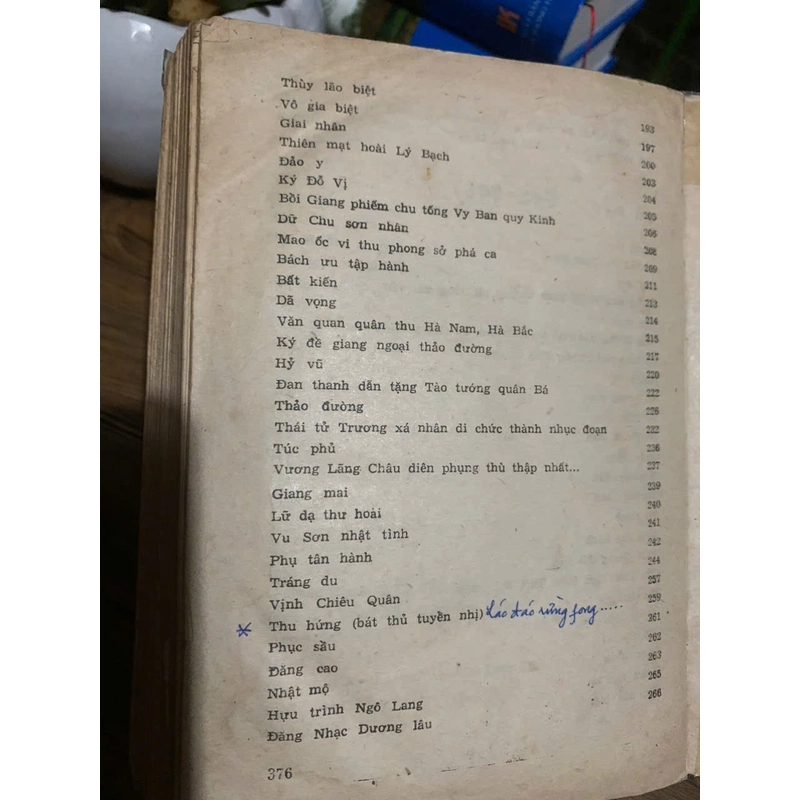 Thùy lão biệt 193
Vô gia biệt 197
Giai nhân 200
Thiên mạt hoài Lý Bạch 203
Đảo y 204
Ký Đỗ Vị 205
Bồi Giang phiếm chu tống Vy Ban quy Kinh 206
Dữ Chu sơn nhân 208
Mao ốc vi thu phong sở phá ca 209
Bách ưu tập hành 211
Bất kiến 213
Dã vọng 214
Văn quan quân thu Hà Nam, Hà Bắc 215
Ký đề giang ngoại thảo đường 217
Hỷ vũ 220
Đan thanh dẫn tặng Tào tướng quân Bá 222
Thảo đường 226
Thái tử Trương xá nhân di chức thành nhục đoạn 232
Túc phủ 236
Vương Lãng Châu diên phụng thù thập nhất... 237
Giang mai 239
Lữ dạ thư hoài 240
Vu Sơn nhật tình 241
Phụ tân hành 242
Tráng du 244
Vịnh Chiêu Quân 257
* Thu hứng (bát thủ tuyển nhị) Lác đác rừng fong..... 259
Phục sầu 261
Đăng cao 262
Nhật mộ 263
Hựu trình Ngô Lang 265
Đăng Nhạc Dương lâu 266
376